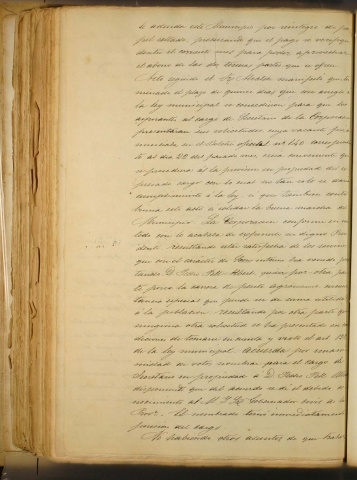 le adeuda este Municipio por reintegro de pa-
pel sellado, procurando que el pago se verifique
dentro el corriente mes para poder aprovecharse
el abono de las dos terceras partes que se ofrece.
Acto seguido el Sr. Alcalde manifestó que ter-
minado el plazo de quince dias que con arreglo a
la ley municipal se concedieron para que los
aspirantes al cargo de Secretario de la Corporacion
presentaran sus solicitudes cuya vacante fue
anunciada en el Boletin oficial nº 140 correspondien-
te al dia 22 del pasado mes, creia conveniente que
se procediera a la provision en propiedad del es-
presado cargo con lo cual no tan solo se dará
cumplimiento a la ley si que tambien contri-
buirá este acto a solidar la buena marcha del
Municipio. La Corporacion conforme en un
todo con lo acabado de esponer su digno Presi-
dente resultando está satisfecha de los servicios
que con el carácter de Secretario interino ha venido pres-
tando D. Pedro Pell
te posee la carrera de perito agrónomo circuns-
tancia especial que puede ser de suma utilidad
á la poblacion resultando por otra parte que
ninguna otra solicitud se ha presentado en
de tomarse en cuenta y visto el art. 122
de la ley municipal, acuerda por unani-
midad de votos nombrar para el cargo de
Secretario en propiedad á D. Pedro Pell
disponiendo que del acuerdo se dé el debido co-
nocimiento al M. I. Sr. Gobernador civil de la
Prov.ª El nombrado tomó inmediatamente
posesion del cargo.
No habiendo otros asuntos de que tratar